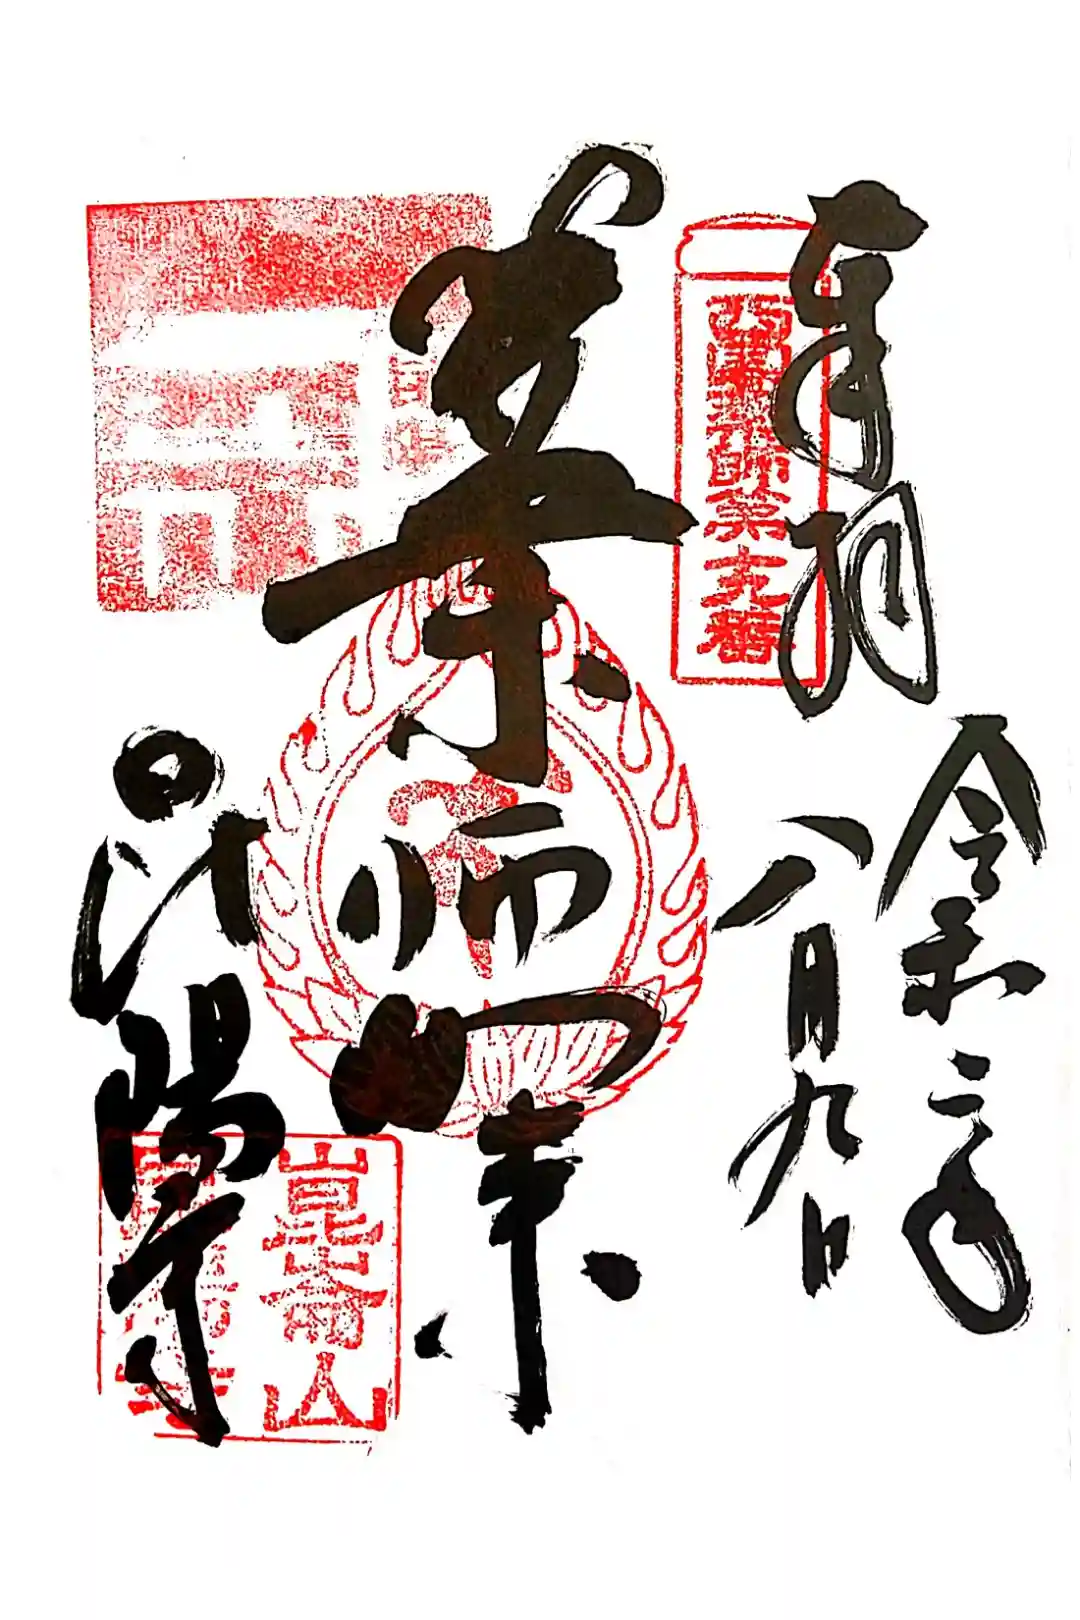 奉拝
西國薬師第十九番
令和二年
八月九日
薬師如来
昆陽寺
崑崙山